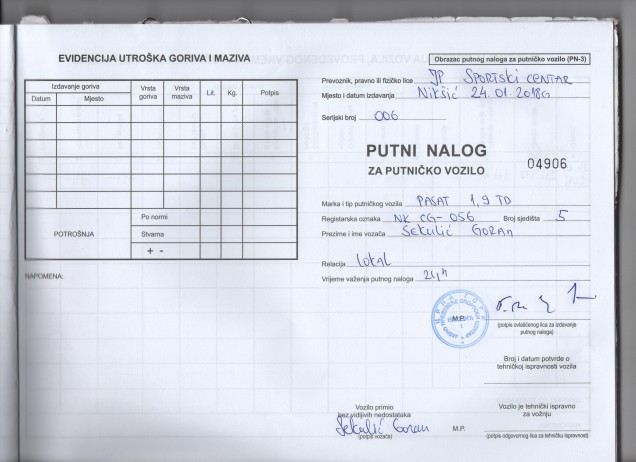 EVIDENCIJA UTROŠKA GORIVA I MAZIVA
Izdavanje goriva
Datum Mjesto Vrsta goriva Vrsta maziva Lit. Kg. Potpis
POTROŠNJA
Po normi
Stvarna
+ -
NAPOMENA:
Obrazac putnog naloga za putničko vozilo (PN-3)
Prevoznik, pravno ili fizičko lice JP SPORTSKI CENTAR
Mjesto i datum izdavanja Nikšić 24.01.2018G
Serijski broj 006
PUTNI NALOG
ZA PUTNIČKO VOZILO
04906
Marka i tip putničkog vozila PASAT 1,9 TD
Registarska oznaka NK CG-056 Broj sjedišta 5
Prezime i ime vozača SEKULIĆ GORAN
Relacija LOKAL
Vrijeme važenja putnog naloga 24h
M.P.
(potpis ovlašćenog lica za izdavanje
putnog naloga)
Broj i datum potvrde o
tehničkoj ispravnosti vozila
Vozilo primio
bez vidljivih nedostataka
Sekulić Goran
(potpis vozača)
M.P.
Vozilo je tehnički ispravno
za vožnju
(potpis odgovornog lica za tehničku ispravnost)